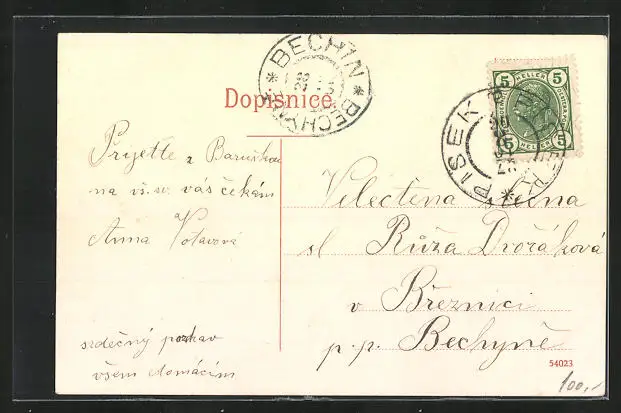 BECHIN * BECHYNĚ *
Dopisnice.
5 HELLER 5
PISEK
Přijeďte z Baruškou
na vs. sv. vás čekám
Anna Votavová
srdečný pozdrav
všem domácím
Velectěná slečna
sl Růža Dvořáková
v Březnici
p. p. Bechyně
54023
100,-